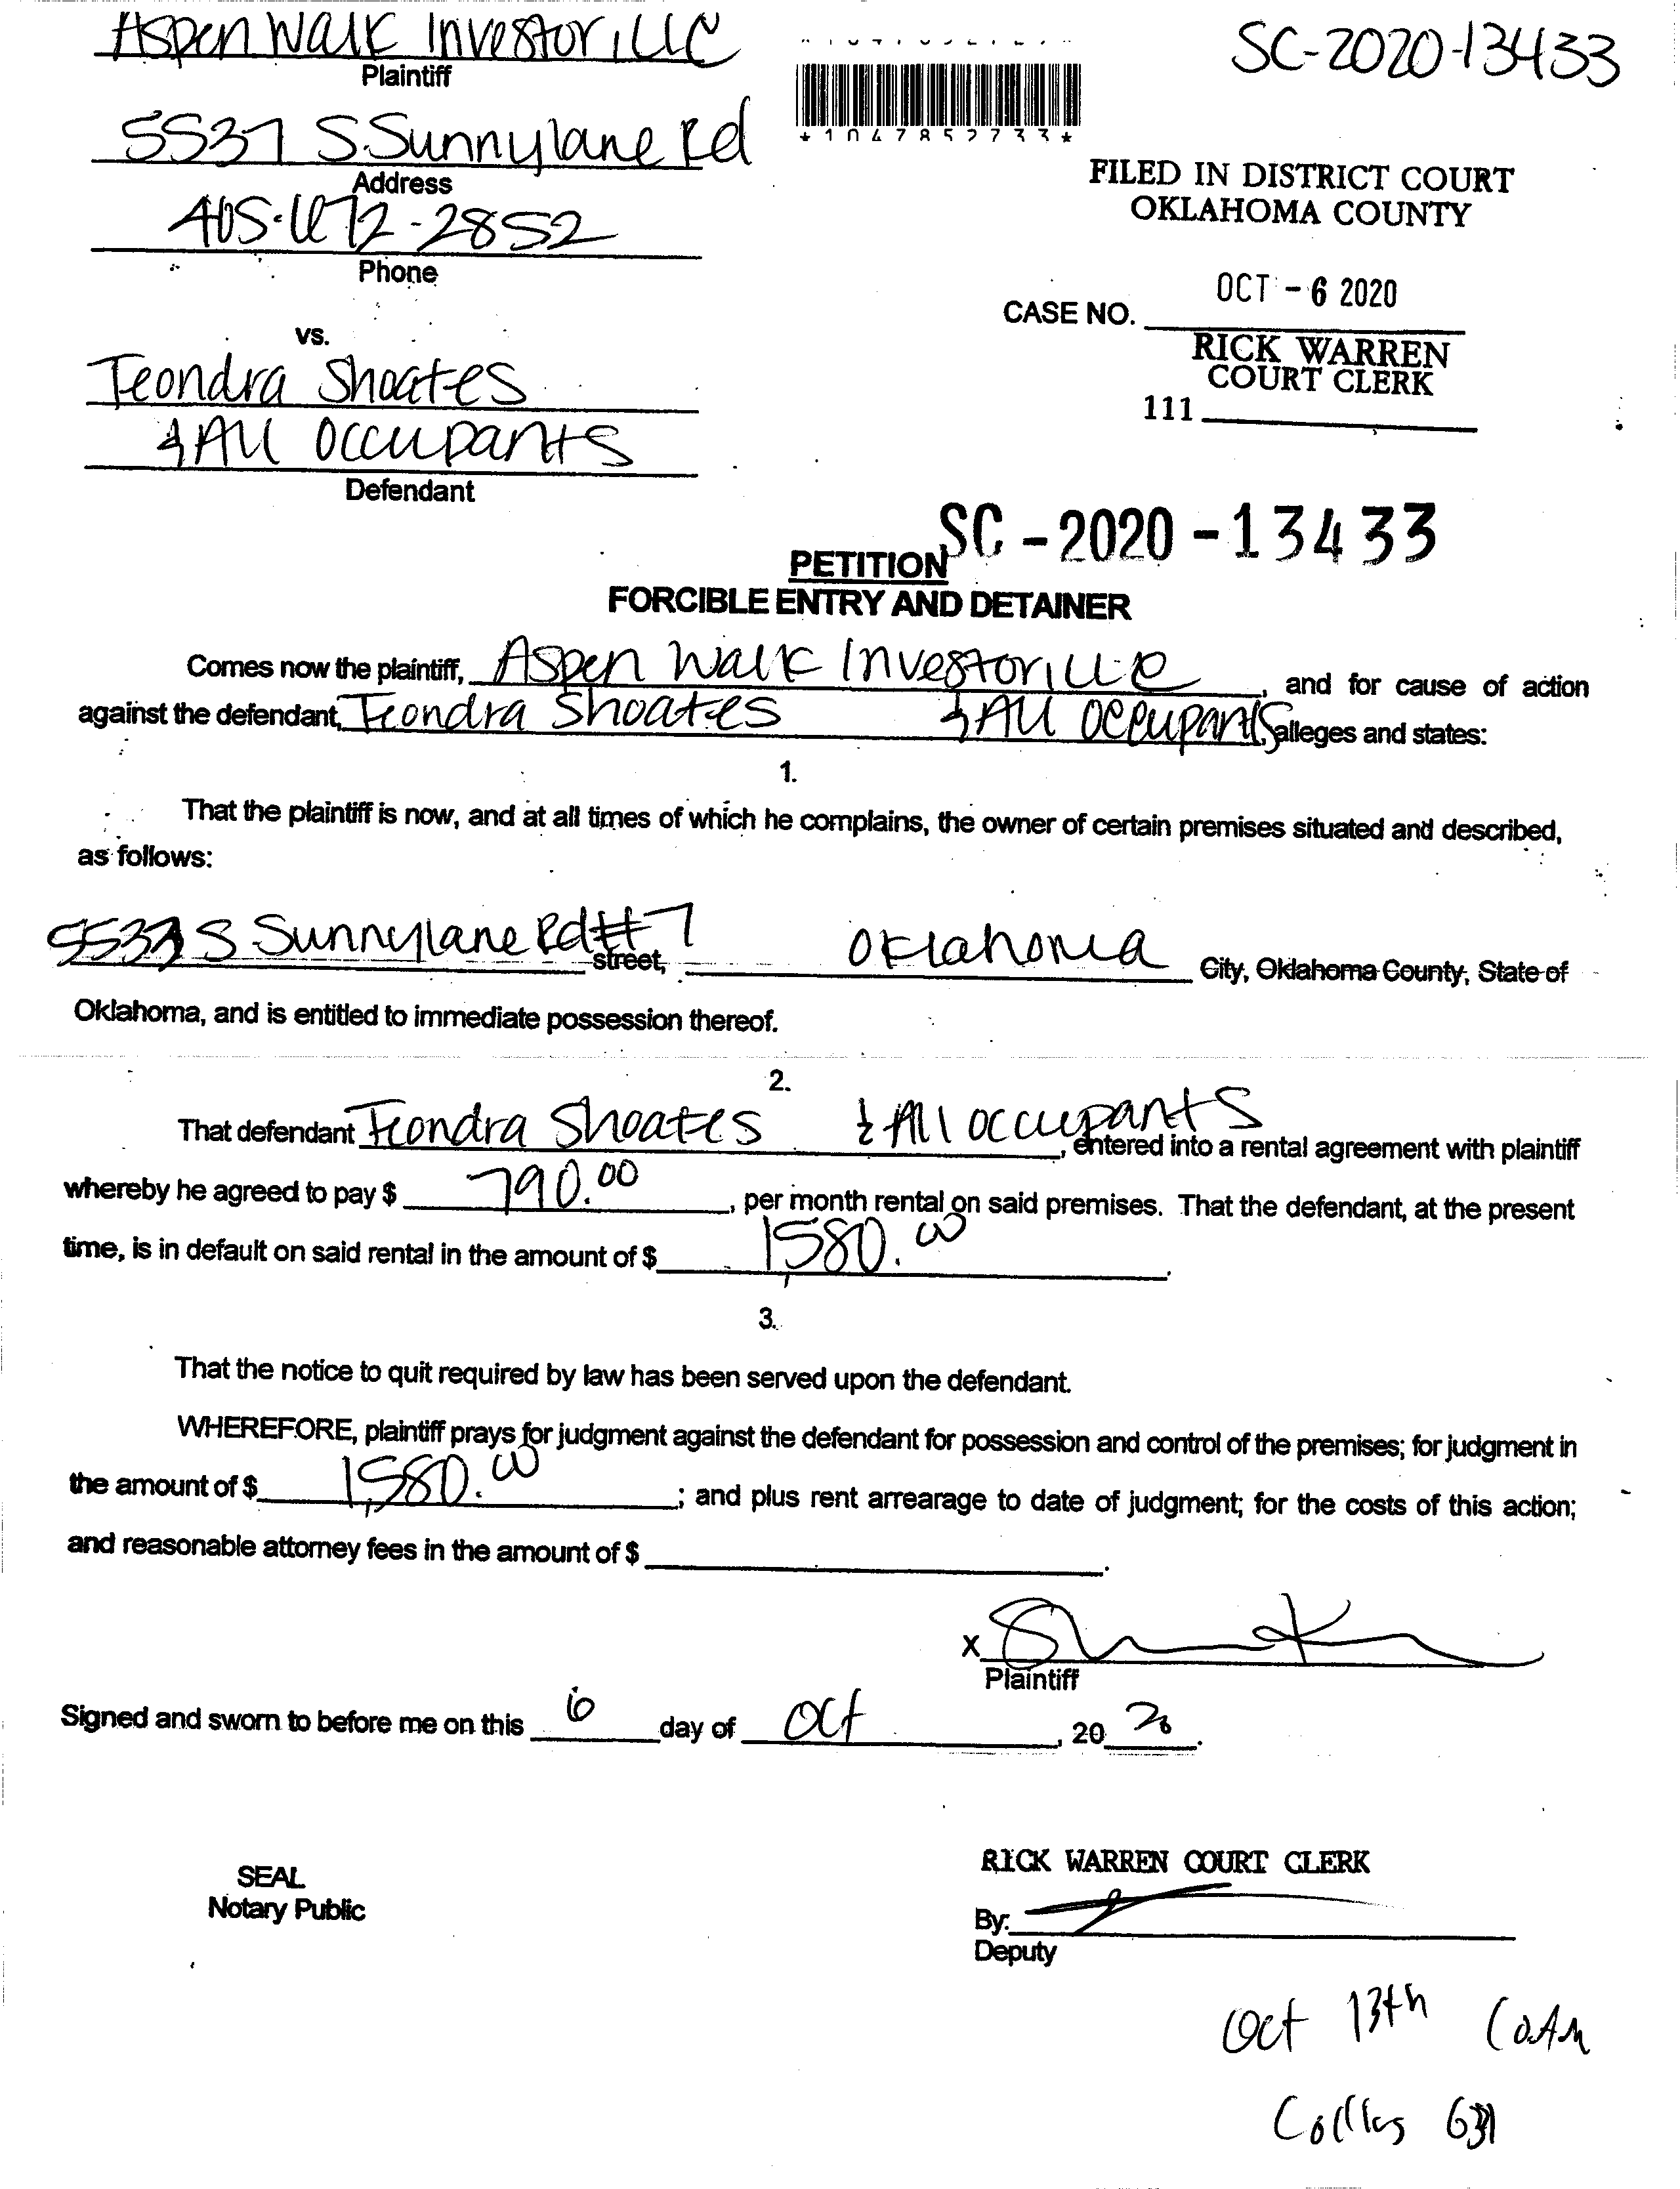 Aspen Walk Investor, LLC
Plaintiff
SC-2020-13433
5537 S. Sunnylane Rd
Address
*1047852733*
405-672-2852
Phone
FILED IN DISTRICT COURT
OKLAHOMA COUNTY
OCT - 6 2020
CASE NO.
RICK WARREN
COURT CLERK
111
vs.
Teondra Shoates
& All Occupants
Defendant
SC-2020-13433
PETITION
FORCIBLE ENTRY AND DETAINER
Comes now the plaintiff, Aspen Walk Investor, LLC, and for cause of action
against the defendant, Teondra Shoates & All Occupants, alleges and states:
1.
That the plaintiff is now, and at all times of which he complains, the owner of certain premises situated and described,
as follows:
5537 S Sunnylane Rd #7 street, Oklahoma City, Oklahoma County, State of
Oklahoma, and is entitled to immediate possession thereof.
2.
That defendant Teondra Shoates & All occupants, entered into a rental agreement with plaintiff
whereby he agreed to pay $ 790.00, per month rental on said premises. That the defendant, at the present
time, is in default on said rental in the amount of $ 1,580.00.
3.
That the notice to quit required by law has been served upon the defendant.
WHEREFORE, plaintiff prays for judgment against the defendant for possession and control of the premises; for judgment in
the amount of $ 1,580.00; and plus rent arrearage to date of judgment; for the costs of this action;
and reasonable attorney fees in the amount of $ .
X
Plaintiff
Signed and sworn to before me on this 6 day of Oct, 20 20.
SEAL
Notary Public
RICK WARREN COURT CLERK
By:
Deputy
Oct 13th 10AM